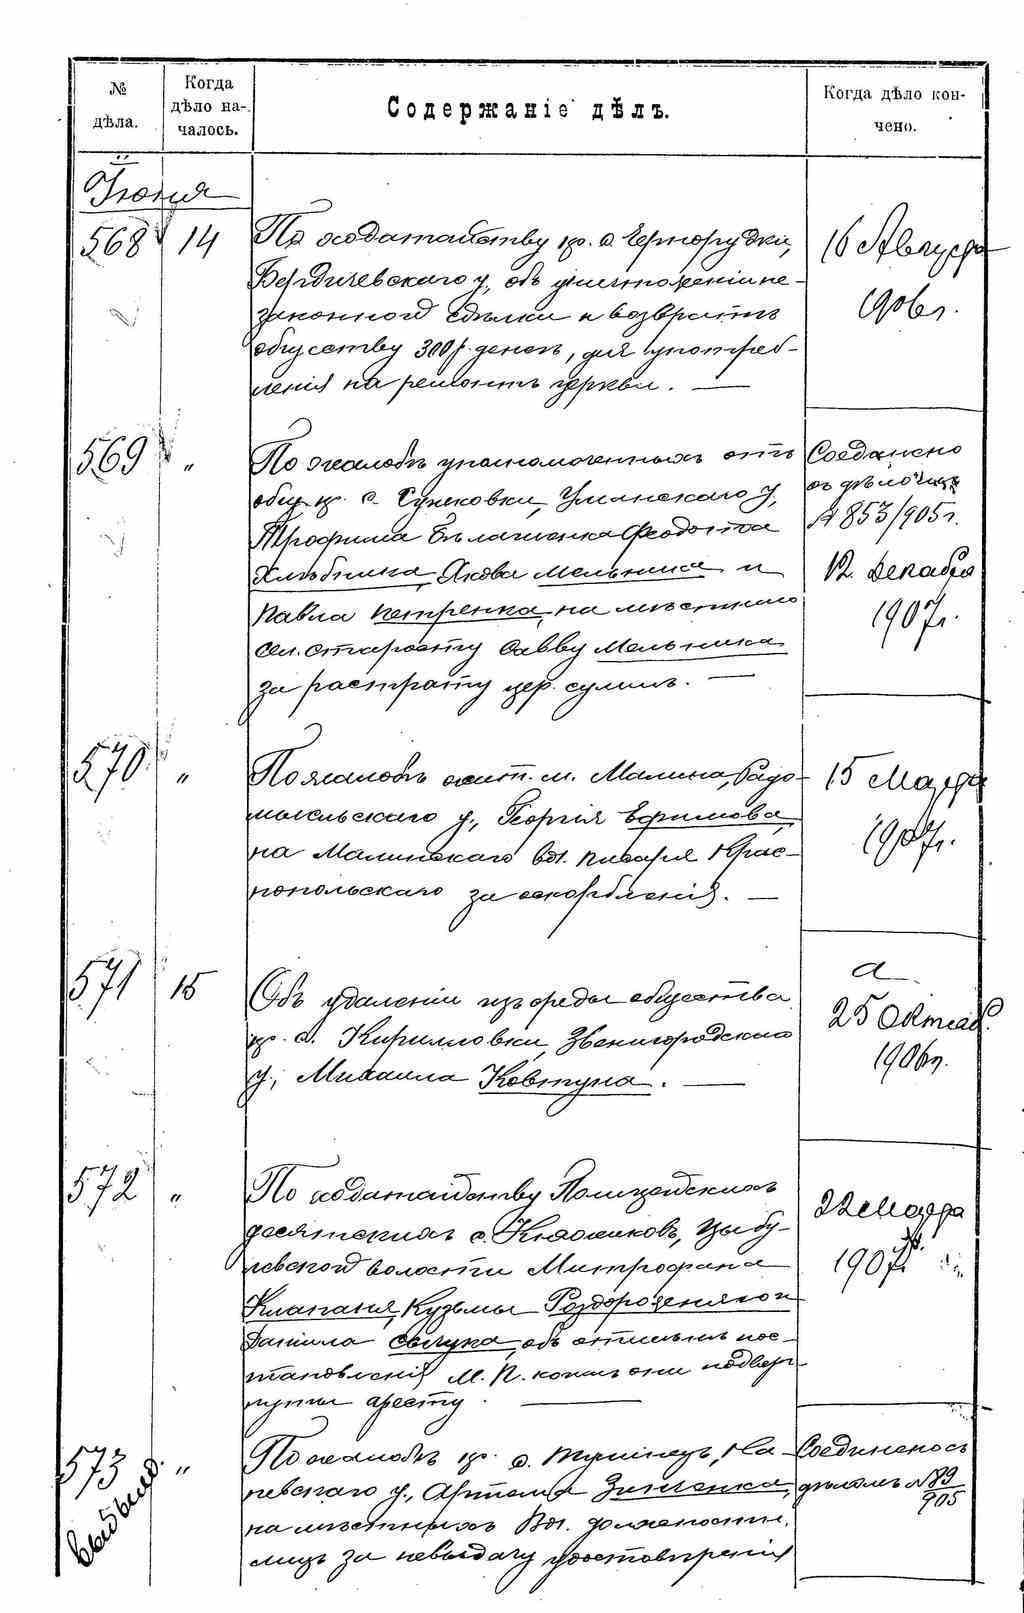 № дѣла.
Когда дѣло началось.
Содержаніе дѣлъ.
Когда дѣло кончено.
Іюня
568 14
По ходатайству кр. с. Чернорудки,
Бердичевскаго у., объ уничтоженіи не-
законной сдѣлки и возвратѣ
обществу 300 р. денегъ, для употреб-
ленія на ремонтъ церкви. —
16 Августа
1906 г.
569 "
По жалобѣ уполномоченныхъ отъ
общ. кр. с. Сушковки, Уманскаго у.,
Трофима Феодота
Хлѣбника, Якова Мельника и
Павла Петренка, на мѣстнаго
сел. старосту Савву Мельника
за растрату цер. суммъ. —
Соединено
съ дѣломъ
№ 853/905 г.
12 Декабря
1907 г.
570 "
По жалобѣ м. Малина, Радо-
мысльскаго у., Георгія Ефимова,
на Малинскаго вол. писаря Крас-
нопольскаго за оскорбленія. —
15 Марта
1907 г.
571 15
Объ удаленіи изъ среды общества
кр. с. Кирилловки, Звенигородскаго
у., Михаила Ковтуна. —
25 Октяб.
1906 г.
572 "
По ходатайству Полицейскихъ
десятскихъ с. Княжиковъ, Цыбу-
левской волости Митрофана
Клапаня, Кузьмы Роздорожняго и
Даніила объ отмѣнѣ пос-
тановленія М. П. коимъ они подверг-
нуты аресту. —
22 Марта
1907 г.
573 "
выбыло.
По жалобѣ кр. с. Тулинецъ, Ка-
невскаго у., Артема Зинченка,
на мѣстныхъ Вол. должностн.
лицъ за невыдачу удостовѣренія
Соединено съ
дѣломъ № 89
905